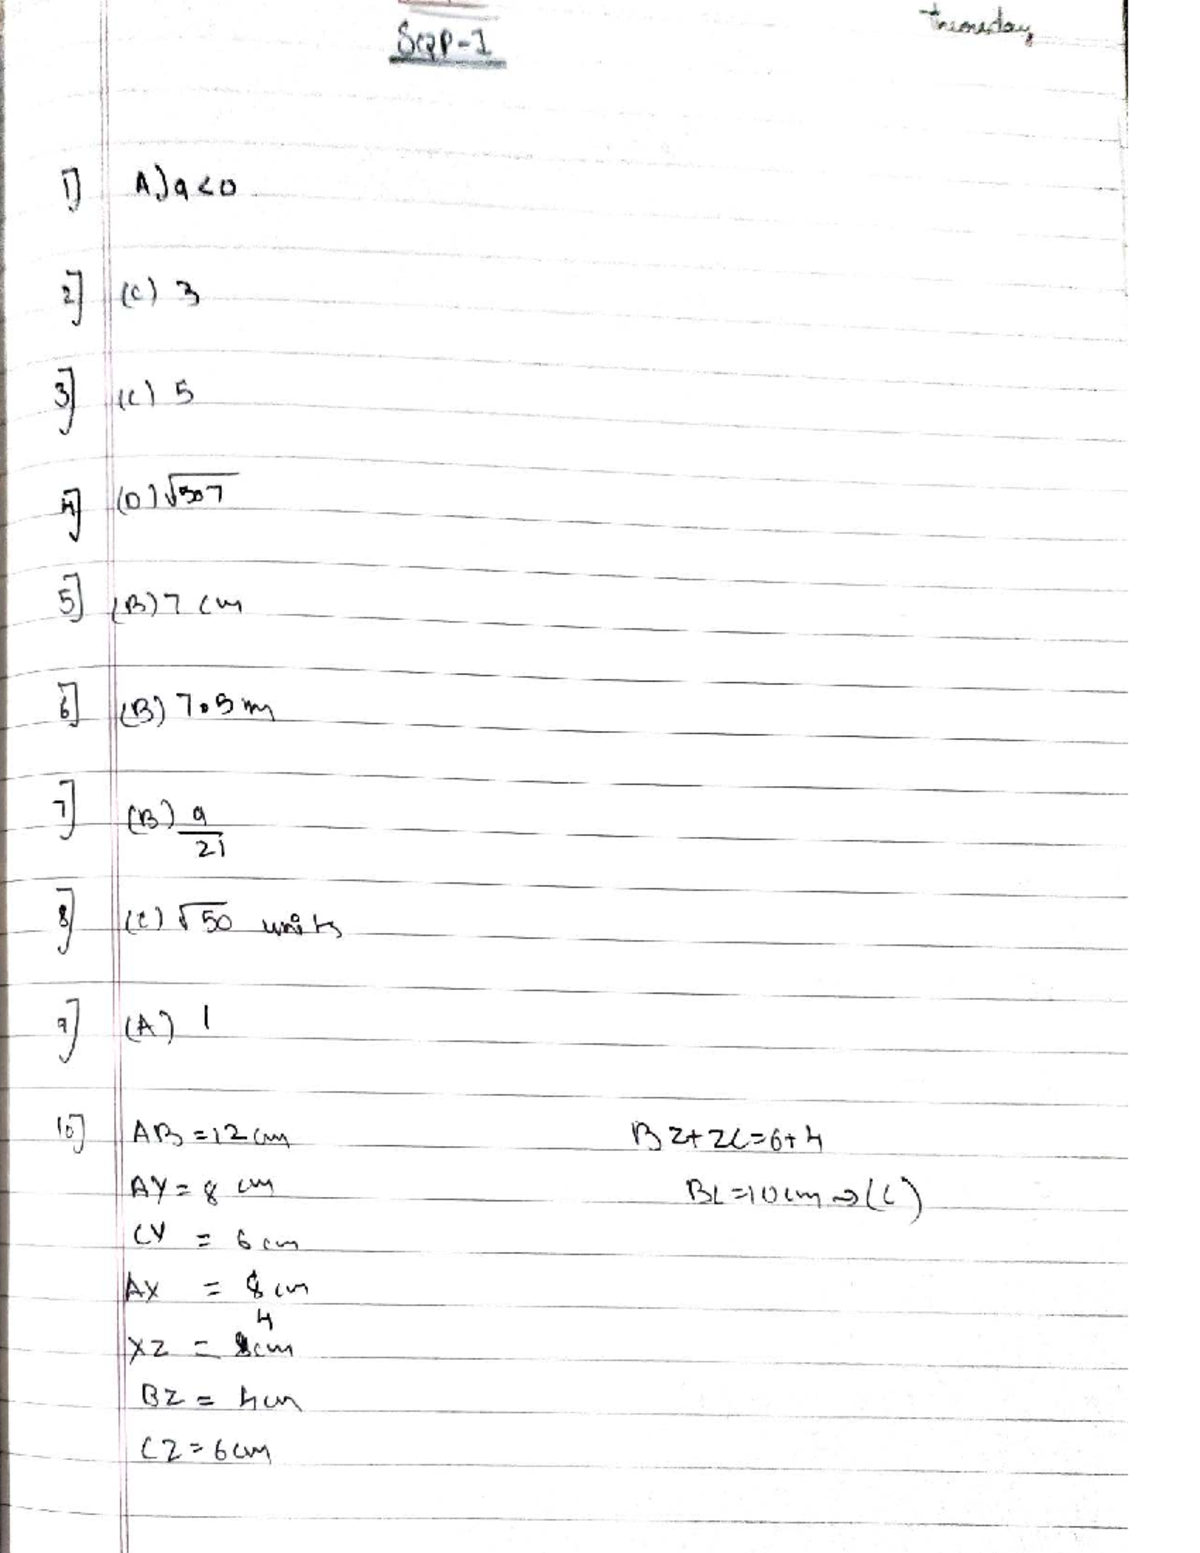 SQP-1
1] A) a<0
2] (C) 3
3] (C) 5
4] (D) √507
5] (B) 7 cm
6] (B) 7.5 m
7] (B) 9/21
8] (C) √50 units
9] (A) 1
10] AB = 12 cm
AY = 8 cm
CY = 6 cm
AX = 8 cm
XZ = 4 cm
BZ = 4 cm
CZ = 6 cm
BZ + ZC = 6+4
BC = 10 cm → (C)